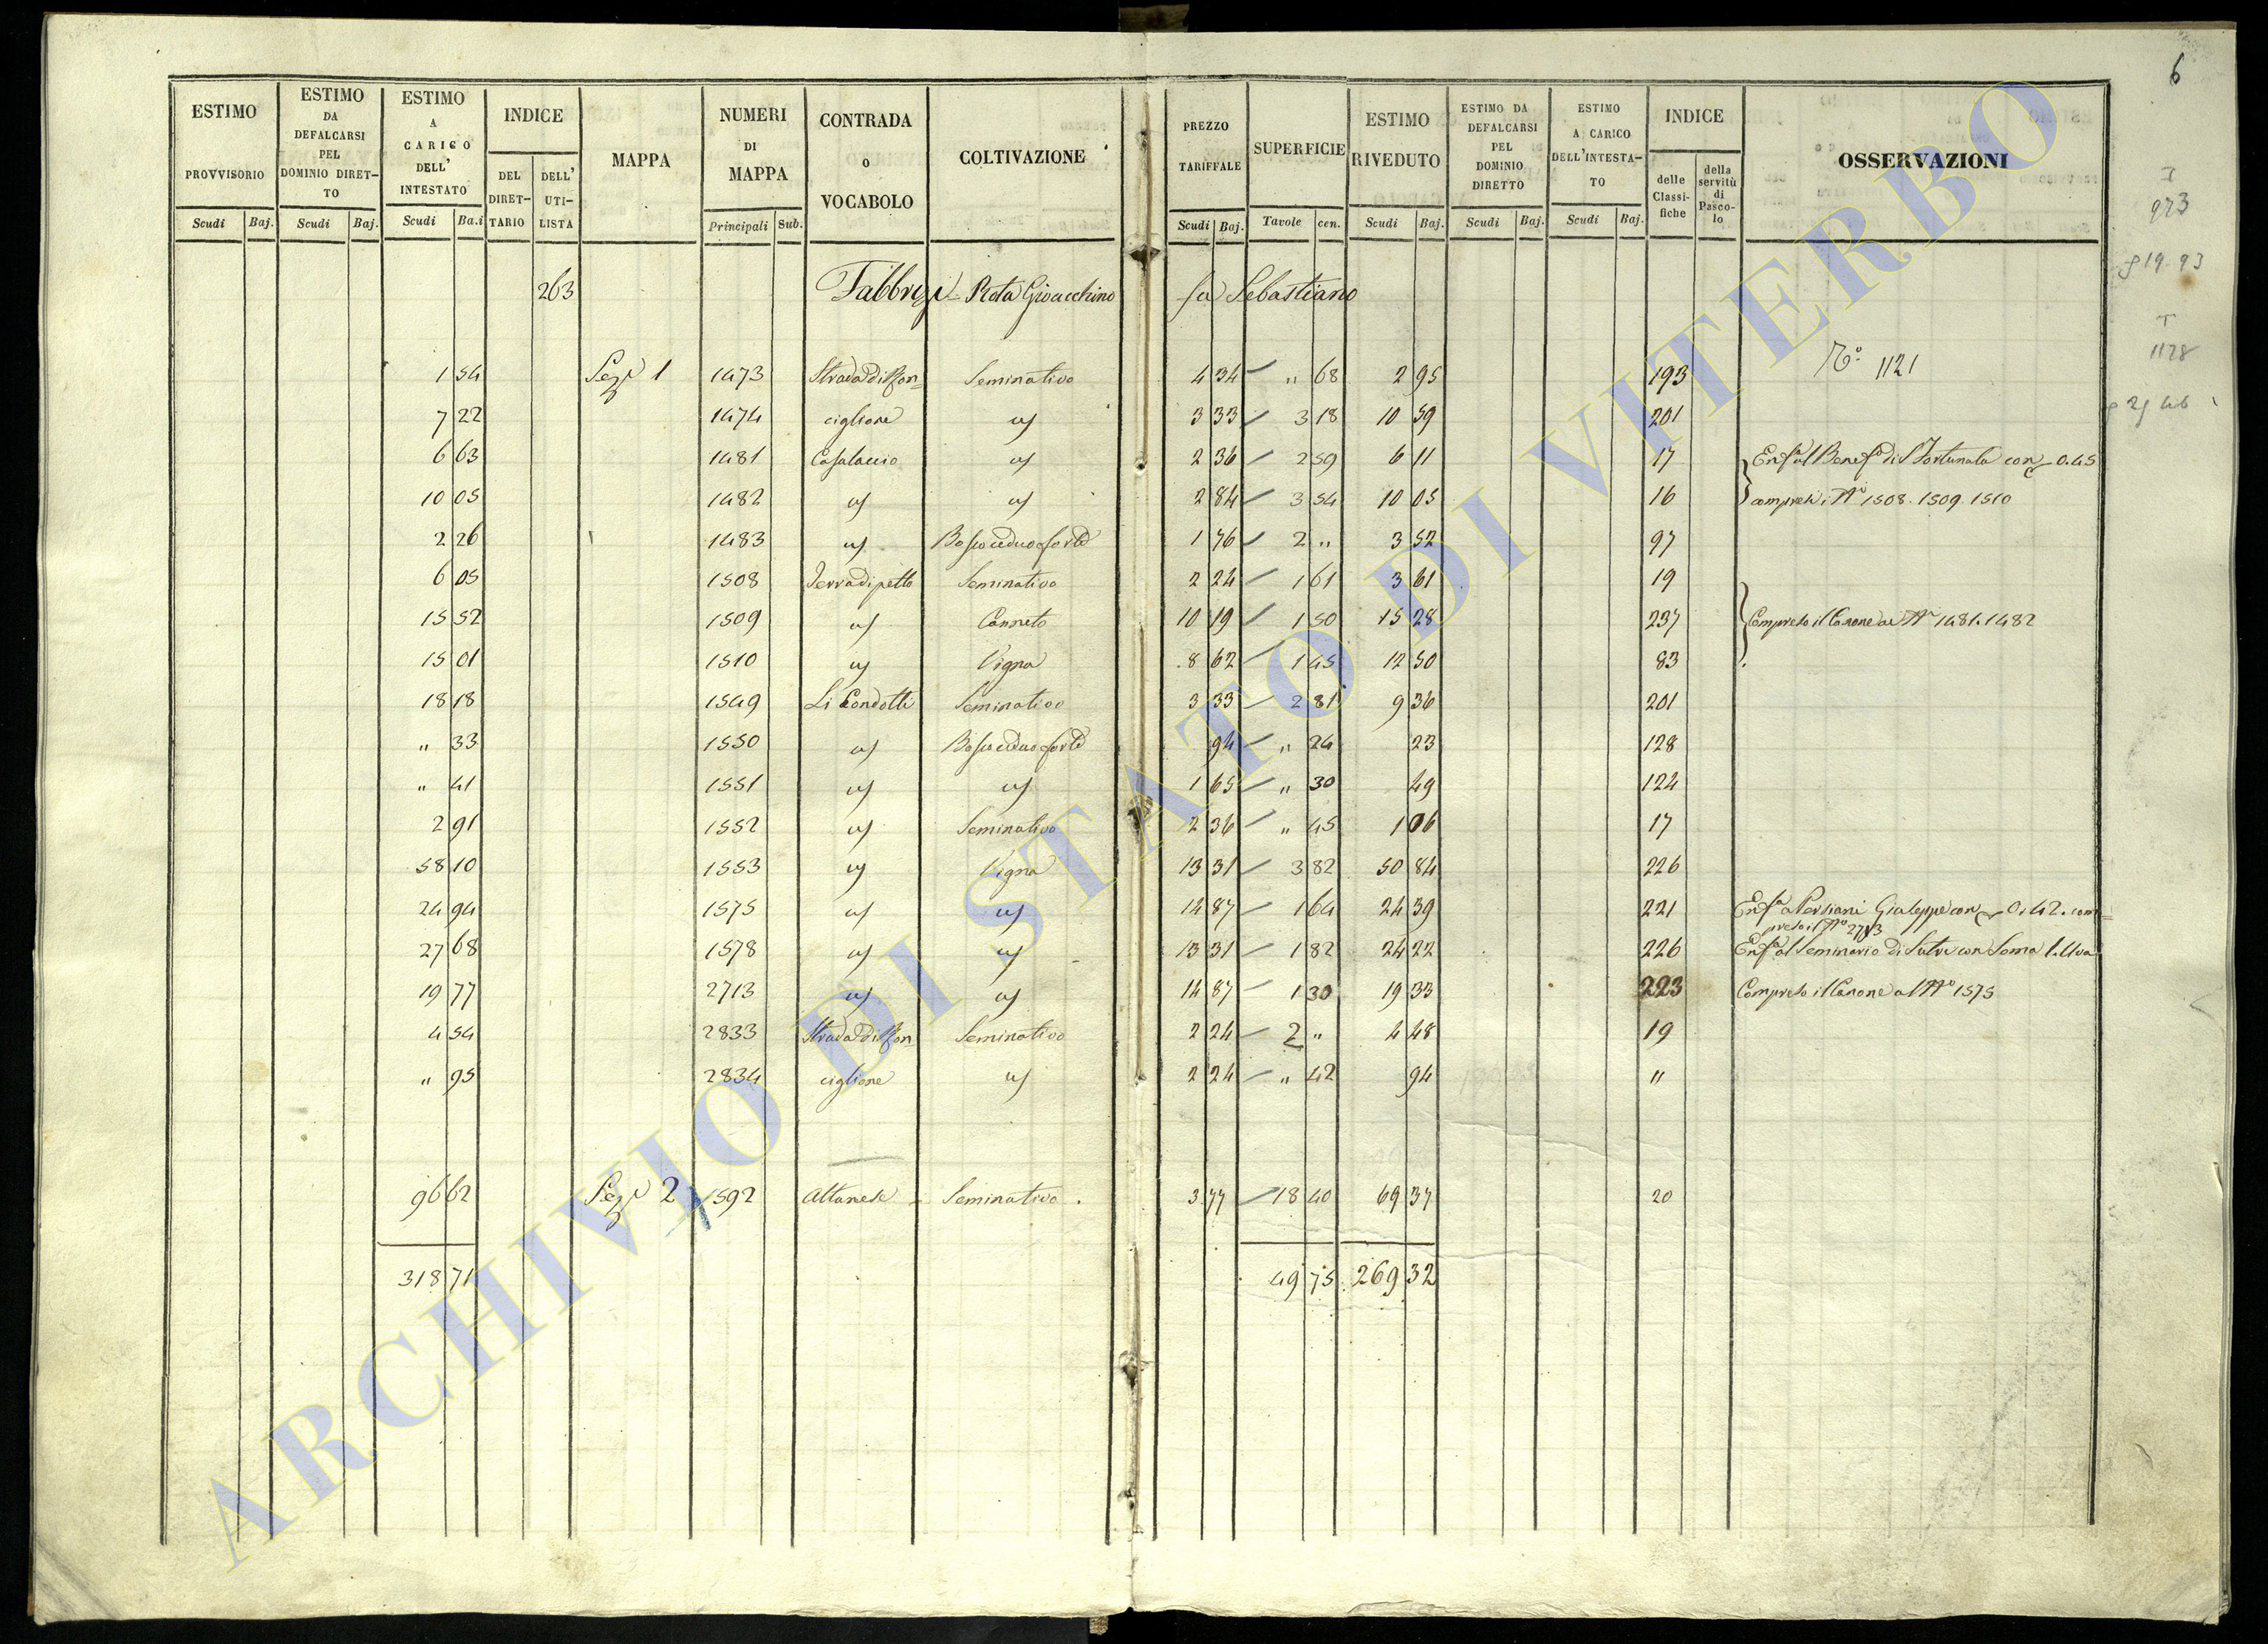 6
ESTIMO PROVVISORIO
ESTIMO DA DEFALCARSI PEL DOMINIO DIRET-TO
ESTIMO A CARICO DELL' INTESTATO
INDICE
DEL DIRET-TARIO
DELL' UTI-LISTA
MAPPA
NUMERI DI MAPPA
CONTRADA O VOCABOLO
COLTIVAZIONE
PREZZO TARIFFALE
SUPERFICIE
ESTIMO RIVEDUTO
ESTIMO DA DEFALCARSI PEL DOMINIO DIRETTO
ESTIMO A CARICO DELL'INTESTA-TO
INDICE
delle Classi-fiche
della servitù di Pasco-lo
OSSERVAZIONI
Scudi Baj. Scudi Baj. Scudi Ba.i Principali Sub. Scudi Baj. Tavole cen. Scudi Baj. Scudi Baj. Scudi Baj.
I
923
19.93
263 Fabbrizi Rota Gioacchino fu Sebastiano
1128
1 54 Sez. 1 1473 Strada di Ron= Seminativo 4 34 " 68 2 95 193 No. 1121
7 22 1474 ciglione " 3 33 3 18 10 59 201
6 63 1481 Casalaccio " 2 36 2 59 6 11 17 Enfa. al Benefo. di S Fortunata con 0.45
10 05 1482 " " 2 84 3 54 10 05 16 compresi i No. 1508. 1509. 1510
2 26 1483 " Bosco ceduo forte 1 76 2 " 3 52 97
6 05 1508 Terra di petto Seminativo 2 24 1 61 3 61 19
15 52 1509 " Canneto 10 19 1 50 15 28 237 Compreso il Canone ai No. 1481. 1482
15 01 1510 " Vigna 8 62 1 45 12 50 83
18 18 1549 Li Condotti Seminativo 3 33 2 81 9 36 201
" 33 1550 " Bosco ceduo forte 94 " 24 23 128
" 41 1551 " " 1 65 " 30 49 124
2 91 1552 " Seminativo 2 36 " 45 1 06 17
58 10 1553 " Vigna 13 31 3 82 50 84 226
24 94 1575 " " 14 87 1 64 24 39 221 Enfa. a Persiani Giuseppe con 0.42. com=
preso il No. 2713
27 68 1578 " " 13 31 1 82 24 22 226 Enfa. al Seminario di Sutri con Soma 1. Uva
19 77 2713 " " 14 87 1 30 19 33 223 Compreso il Canone al No. 1575
4 54 2833 Strada di Ron Seminativo 2 24 2 " 4 48 19
" 95 2834 ciglione " 2 24 " 42 94 "
96 62 Sez. 2 1592 Altanese Seminativo. 3 77 18 40 69 37 20
318 71 49 75 269 32
ARCHIVIO DI STATO DI VITERBO